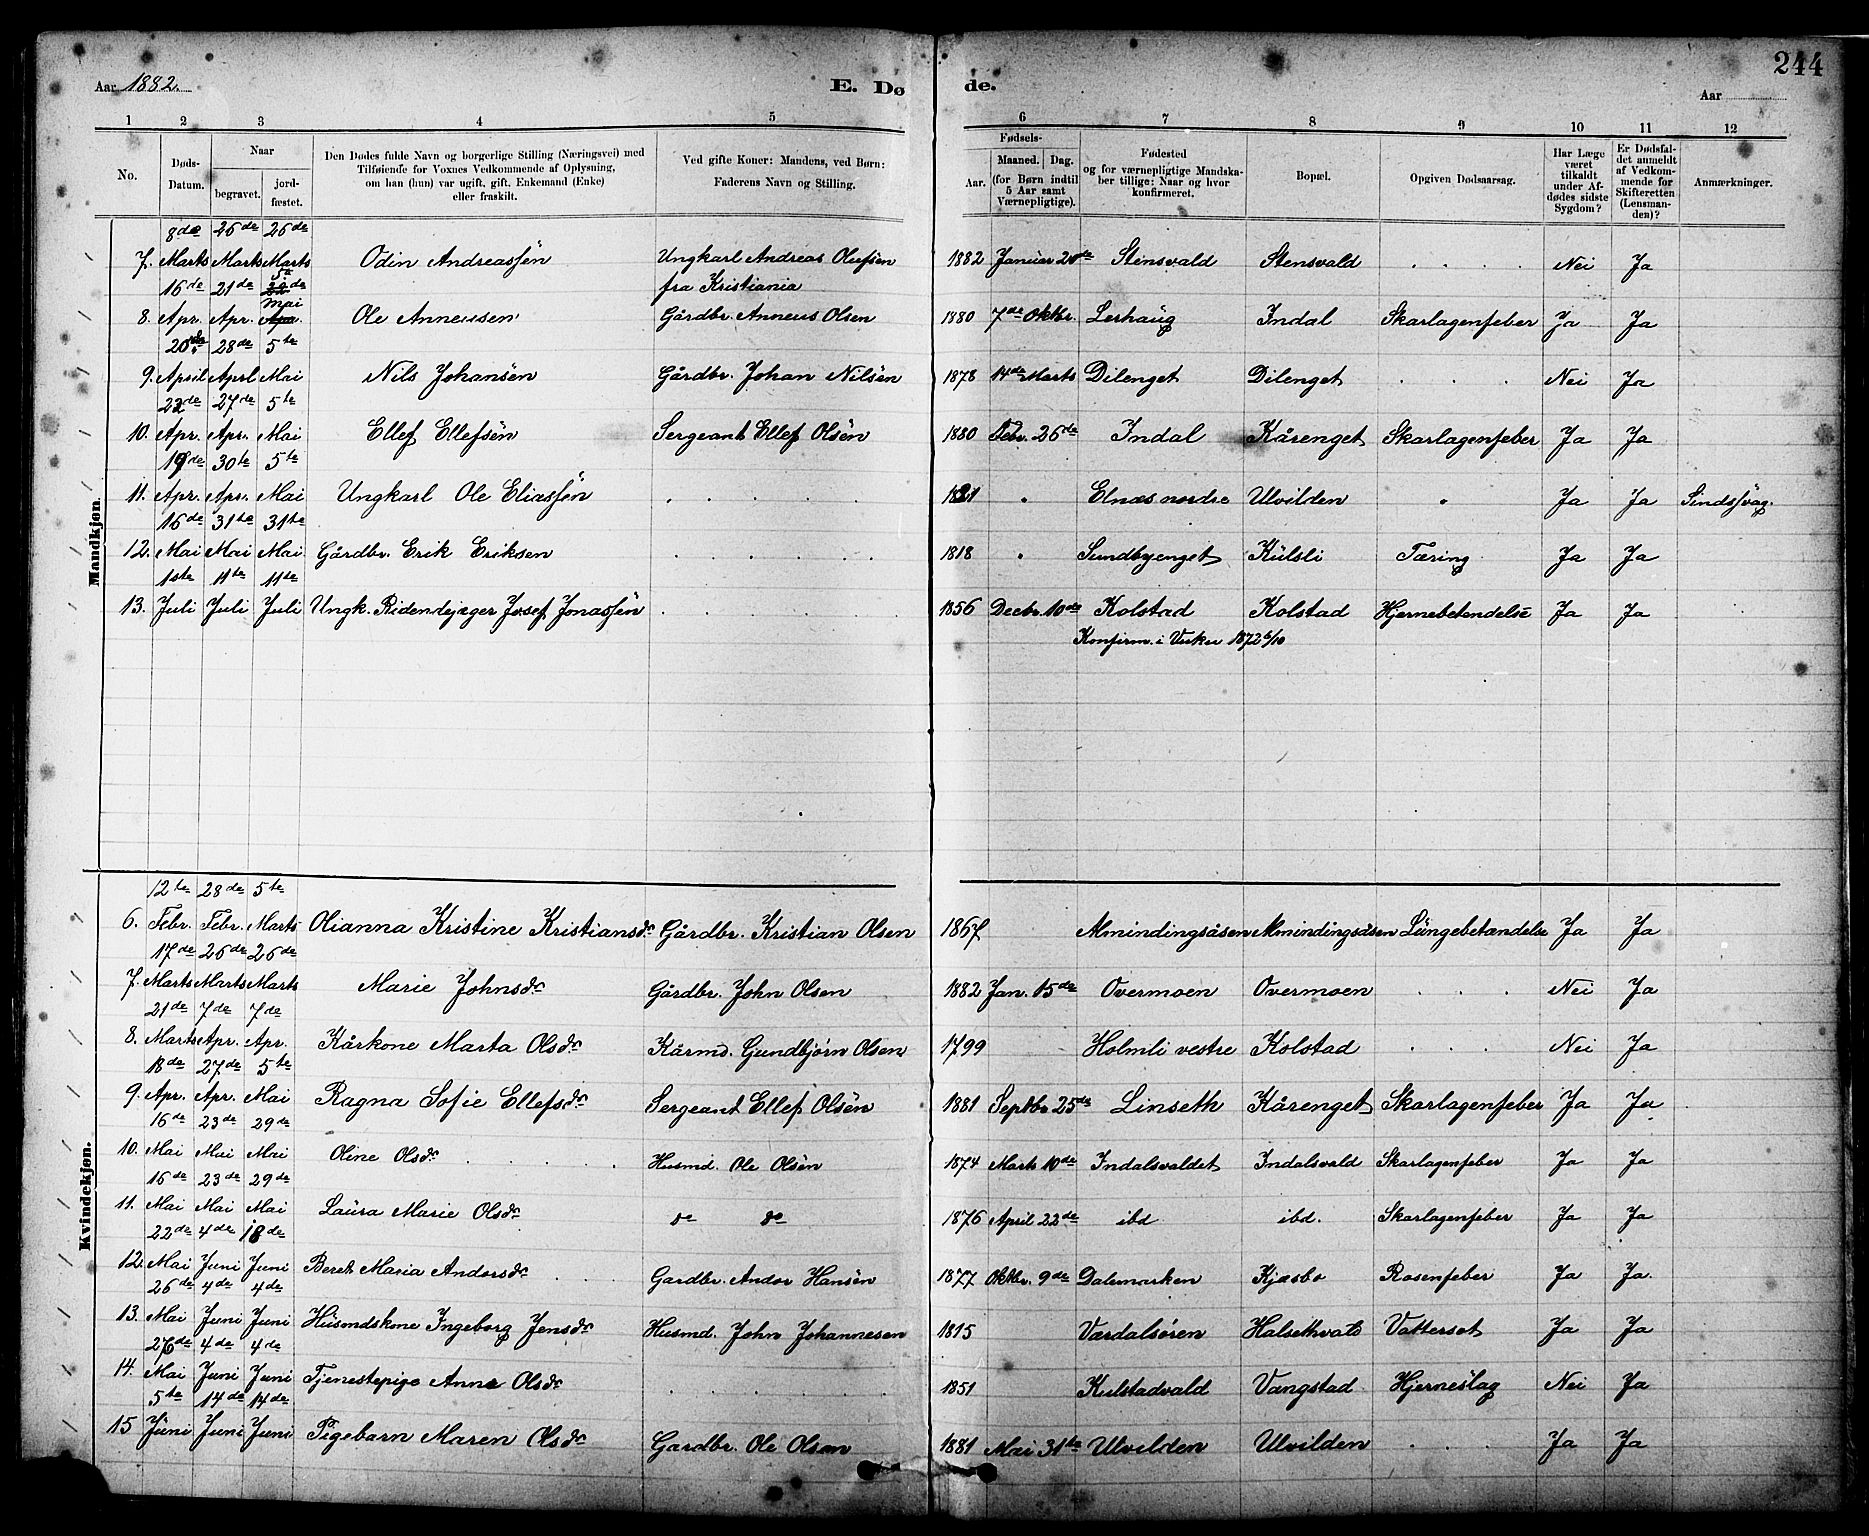 244
Aar 1882. E. Dø de. Aar
1 2 3 4 5 6 7 8 9 10 11 12
No. Døds-Datum. Naar begravet. jordfæstet. Den Dødes fulde Navn og borgerlige Stilling (Næringsvei) med Tilføiende for Voxnes Vedkommende af Oplysning, om han (hun) var ugift, gift, Enkemand (Enke) eller fraskilt. Ved gifte Koner: Mandens, ved Børn: Faderens Navn og Stilling. Fødsels- Aar. Maaned. Dag. (for Børn indtil 5 Aar samt Værnepligtige). Fødested og for værnepligtige Mandskaber tillige: Naar og hvor konfirmeret. Bopæl. Opgiven Dødsaarsag. Har Læge været tilkaldt under Afdødes sidste Sygdom? Er Dødsfaldet anmeldt af Vedkommende for Skifteretten (Lensmanden)? Anmærkninger.
Mandkjøn.
8de 26de 26de
7. Marts Marts Marts Odin Andreassen Ungkarl Andreas Olufsen 1882 Januar 20de Stensvald Stensvald . . . Nei Ja
16de 21de 5te fra Kristiania
8. Apr. Apr. Mai Ole Anneusen Gårdbr. Anneus Olsen 1880 7de Oktbr. Lerhaug Indal Skarlagenfeber Ja Ja
20de 28de 5te
9. April Aprl Mai Nils Johansen Gårdbr. Johan Nilsen 1878 14de Marts Dilenget Dilenget . . . Nei Ja
22de 27de 5te
10. Apr. Apr. Mai Ellef Ellefsen Sergeant Ellef Olsen 1880 Febr. 26de Indal Kårenget Skarlagenfeber Ja Ja
19de 30te 5te
11. Apr. Apr. Mai Ungkarl Ole Eliassen . . . . 1821 " Elnæs nordre Ulvilden " Ja Ja Sindssvag.
16de 31te 31te
12. Mai Mai Mai Gårdbr. Erik Eriksen . . . . 1818 " Sundbyenget Kulsli Tæring Ja Ja
1ste 11te 11de
13. Juli Juli Juli Ungk. Ridendejæger Josef Jonassen . . . . 1856 Decbr. 10de Kolstad Kolstad Hjernebetendelse Ja Ja
Konfirm. i Vuku 1872 6/10
Kvindekjøn.
12te 28de 5te
6. Febr. Febr. Marts Olianna Kristine Kristiansdr Gårdbr. Kristian Olsen 1867 Almindingsåsen Almindingsåsen Lungebetændelse Ja Ja
17de 26de 26de
7. Marts Marts Marts Marie Johnsdr Gårdbr. John Olsen 1882 Jan. 15de Overmoen Overmoen . . . Nei Ja
21de 7de 7de
8. Marts Apr. Apr. Kårkone Marta Olsdr Kårmd. Gundbjørn Olsen 1799 Holmli vestre Kolstad . . . Nei Ja
18de 27de 5te
9. Apr. Apr. Mai Ragna Sofie Ellefsdr Sergeant Ellef Olsen 1881 Septbr. 25de Linseth Kårenget Skarlagenfeber Ja Ja
16de 23de 29de
10. Mai Mai Mai Oline Olsdr . . . . Husmd. Ole Olsen 1874 Marts 10de Indalsvaldet Indalsvald Skarlagenfeber Ja Ja
16de 23de 29de
11. Mai Mai Mai Laura Marie Olsdr do do 1876 April 22de ibd ibd. Skarlagenfeber Ja Ja
22de 4de 18de
12. Mai Juni Juni Beret Maria Andorsdr . . Gardbr. Andor Hansen 1877 Oktbr. 9de Dalemarken Kjæsbo Rosenfeber Ja Ja.
26de 4de 4de
13. Mai Juni Juni Husmdskone Ingeborg Jensdr Husmd. John Johannesen 1815 Værdalsøren Halsethvald Vattersot Ja Ja
27de 4de 4de
14. Mai Juni Juni Tjenestepige Anne Olsdr . . . . 1851 Kulstadvald Vangstad Hjerneslag Nei Ja
5te 14de 14de
15 Juni Juni Juni Pigebarn Maren Olsdr Gardbr. Ole Olsen 1881 Mai 31te Ulvilden Ulvilden . . . Ja Ja